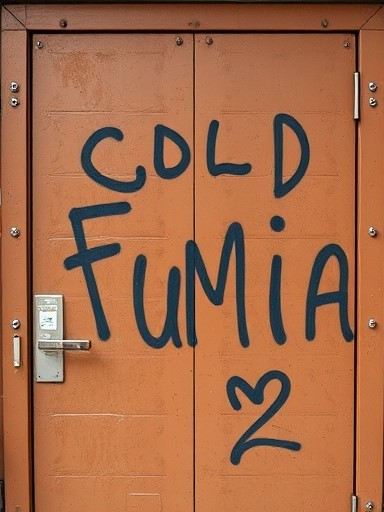 COLD
FUMiA
2